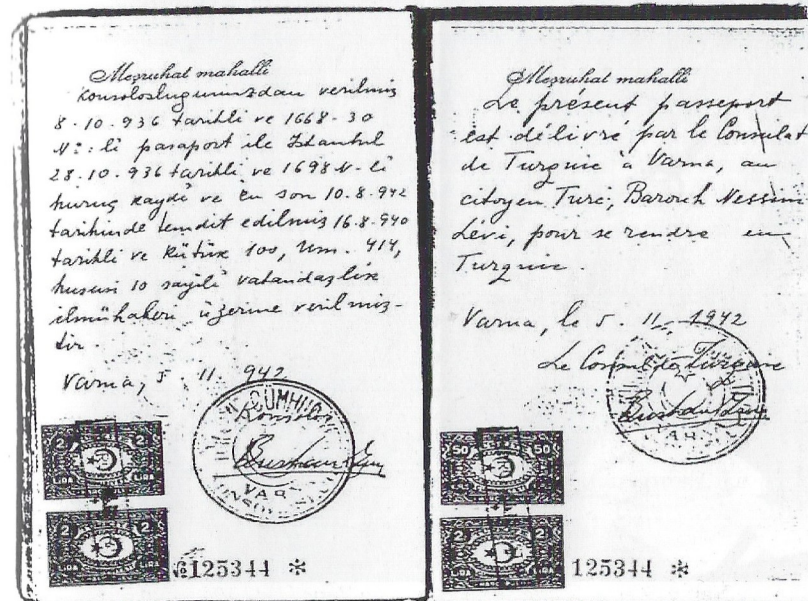 Meşruhat mahalli
Konsolosluğumuzdan verilmiş
8.10.936 tarihli ve 1668-30
N:: li pasaport ile Istanbul
28.10.936 tarihli ve 1698 N-li
huruç kaydi ve en son 10.8.942
tarihinde temdit edilmiş 16.8.940
tarihli ve Kütük 100, Um. 414,
hususi 10 sayili vatandaşlik
ilmühaberi üzerine verilmiş-
tir.
Varna, 5. 11 942
2½ 2½
LIRA LIRA
2½ 2½
LIRA LIRA
125344 *
Meşruhat mahalli
Le présent passeport
est délivré par le Consulat
de Turquie à Varna, au
citoyen Turc, Barouh Nessim
Lévi, pour se rendre en
Turquie.
Varna, le 5. 11 1942
Le Consul de Turquie
50 50
125344 *